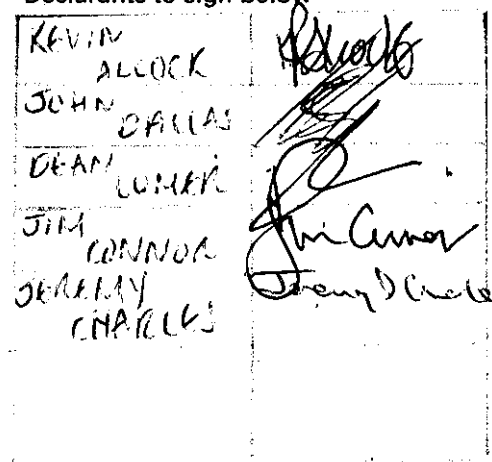 Declarants to sign below
KEVIN
ALLOCK
JOHN
DALLAS
DEAN
LOMER
JIM
CONNOR
Jim Connor
JEREMY
CHARLES
Jeremy D Charles